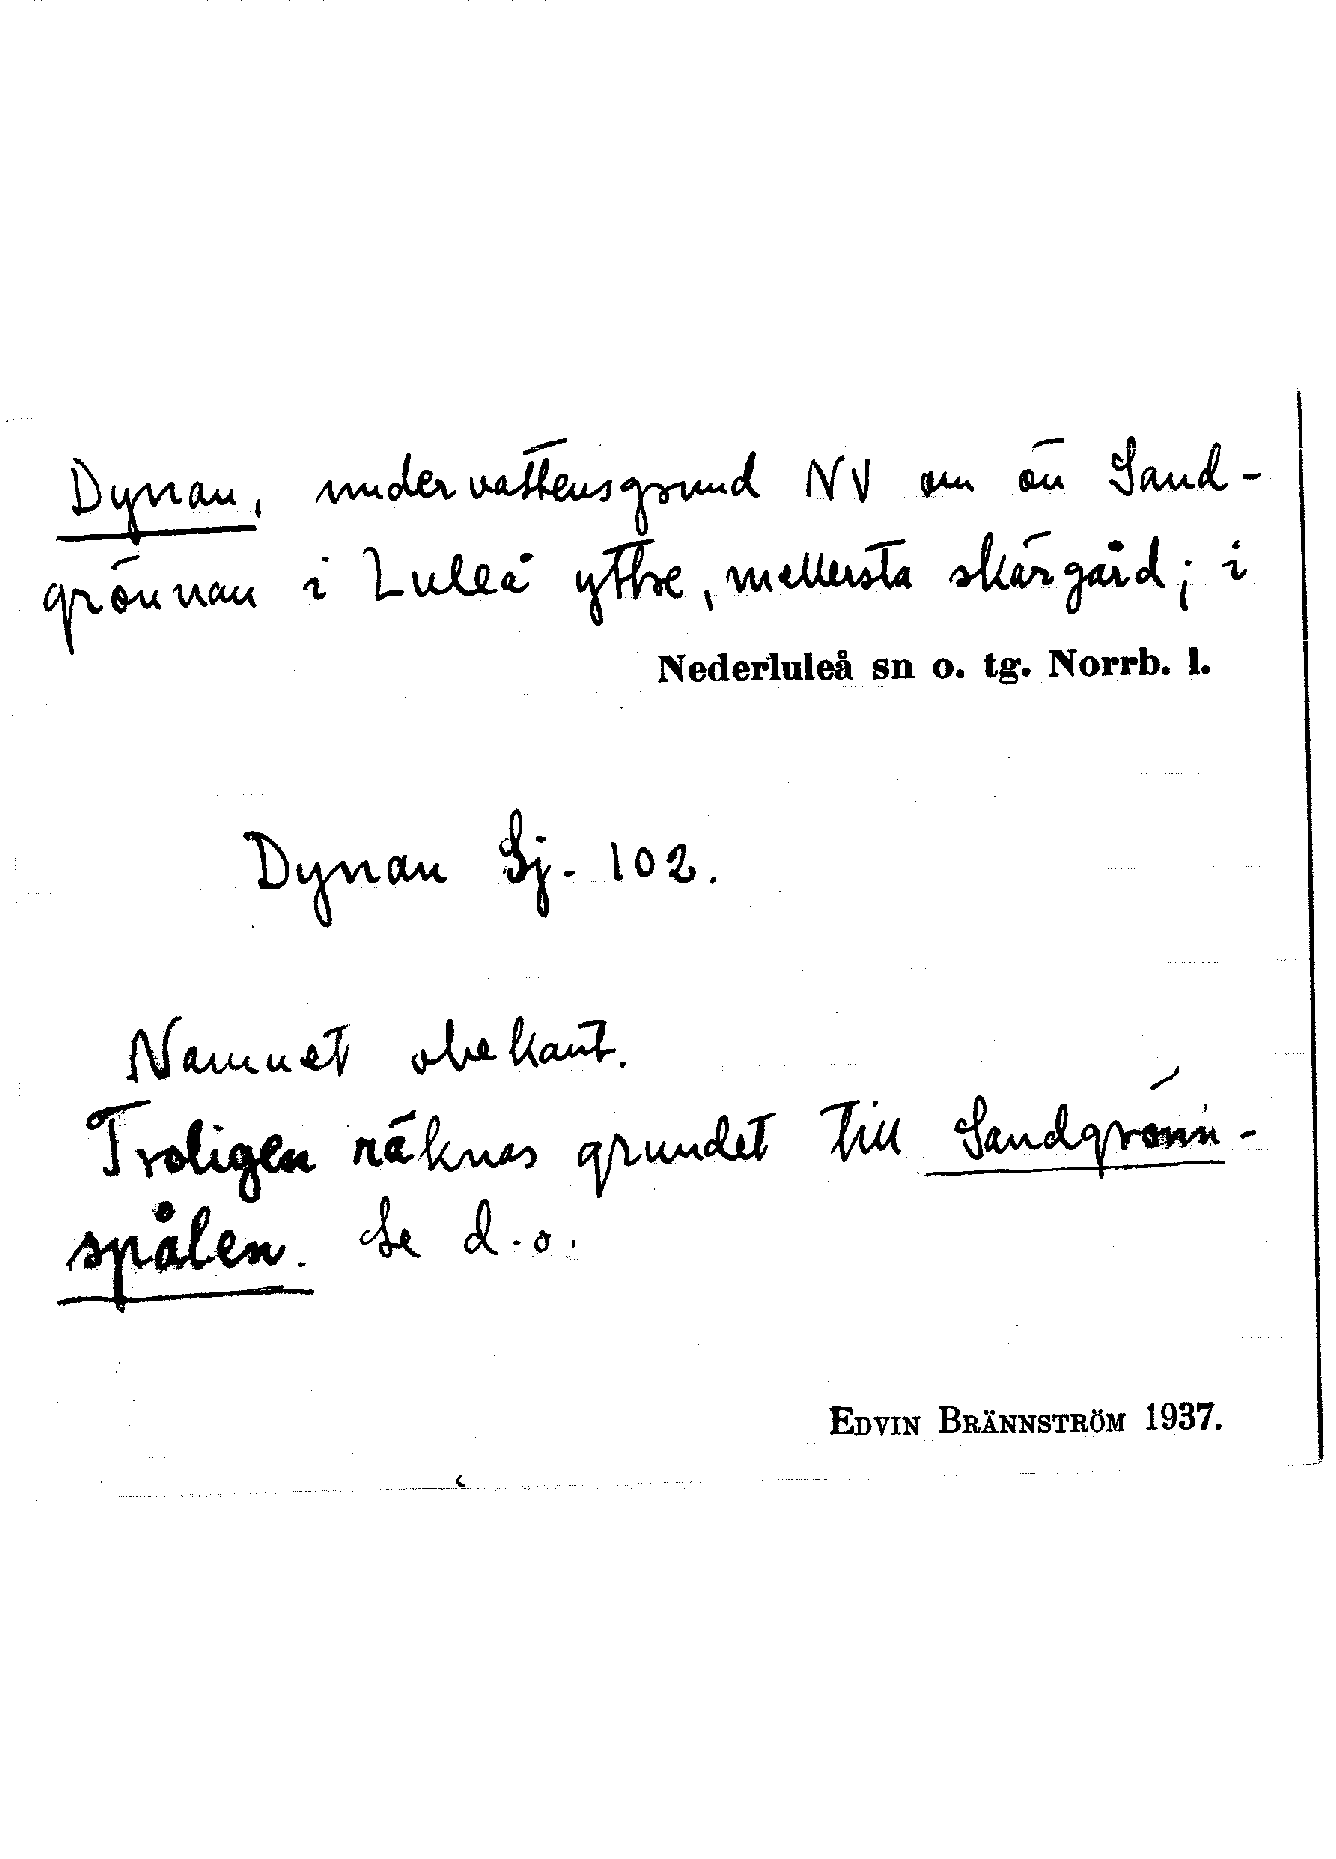 Dynan, undervattensgrund NV om ön Sand-
grönnan i Luleå yttre, mellersta skärgård; i
Nederluleå sn o. tg. Norrb. l.
Dynan Sj. 102.
Namnet obekant.
Troligen räknas grundet till Sandgrönn-
spålen. Se d.o.
EDVIN BRÄNNSTRÖM 1937.